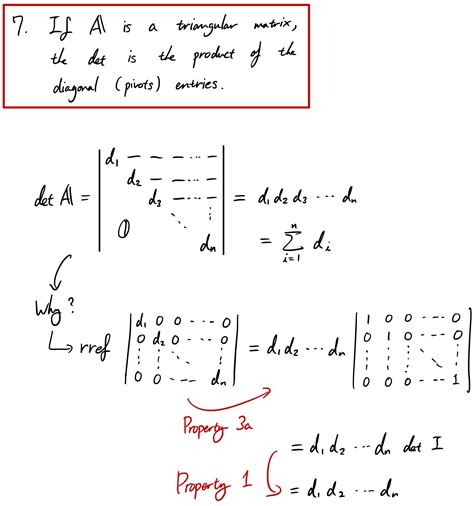 7. If A is a triangular matrix,
the det is the product of the
diagonal (pivots) entries.
det A = | d₁ — — --- — | = d₁ d₂ d₃ ··· dₙ
d₂ — --- —
d₃ --- —
0 ⋱ ⋮
dₙ |
= Σ_{i=1}^{n} dᵢ
Why?
↳ rref | d₁ 0 0 --- 0 | = d₁ d₂ ··· dₙ | 1 0 0 --- 0 |
| 0 d₂ 0 --- 0 | | 0 1 0 --- 0 |
| ⋮ ⋮ ⋮ ⋱ ⋮ | | ⋮ ⋮ ⋮ ⋱ ⋮ |
| 0 0 --- dₙ | | 0 0 0 --- 1 |
Property 3a
= d₁ d₂ ··· dₙ det I
Property 1
= d₁ d₂ ··· dₙ